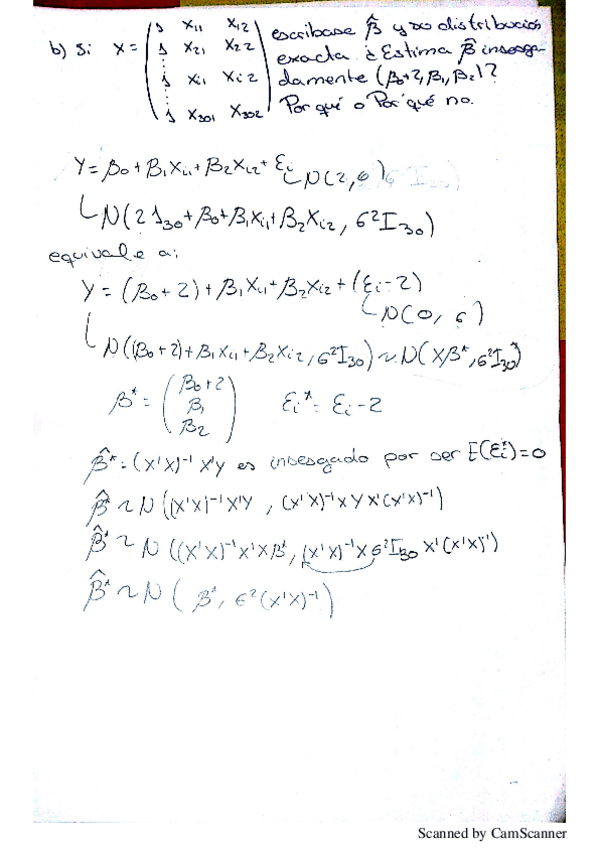 b) Si X = (1 x11 x12
1 x21 x22
⋮
1 xi1 xi2
⋮
1 x301 x302) escríbase β̂ y su distribución
exacta ¿Estima β̂ insesga-
damente (β0+2, β1, β2)?
Por qué o Por qué no.
Y = β0 + β1Xi1 + β2Xi2 + εi
N(2, σ)
N(2 1₃₀ + β0 + β1Xi1 + β2Xi2, σ²I₃₀)
equivale a:
Y = (β0 + 2) + β1Xi1 + β2Xi2 + (εi - 2)
N(0, σ)
N((β0 + 2) + β1Xi1 + β2Xi2, σ²I₃₀) ~ N(Xβ*, σ²I₃₀)
β* = (β0+2
β1
β2) εi* = εi - 2
β̂* = (X'X)⁻¹ X'Y es insesgado por ser E(εi*) = 0
β̂* ~ N((X'X)⁻¹X'Y, (X'X)⁻¹XYX'(X'X)⁻¹)
β̂* ~ N((X'X)⁻¹X'Xβ*, (X'X)⁻¹Xσ²I₃₀X'(X'X)⁻¹)
β̂* ~ N(β*, σ²(X'X)⁻¹)
Scanned by CamScanner